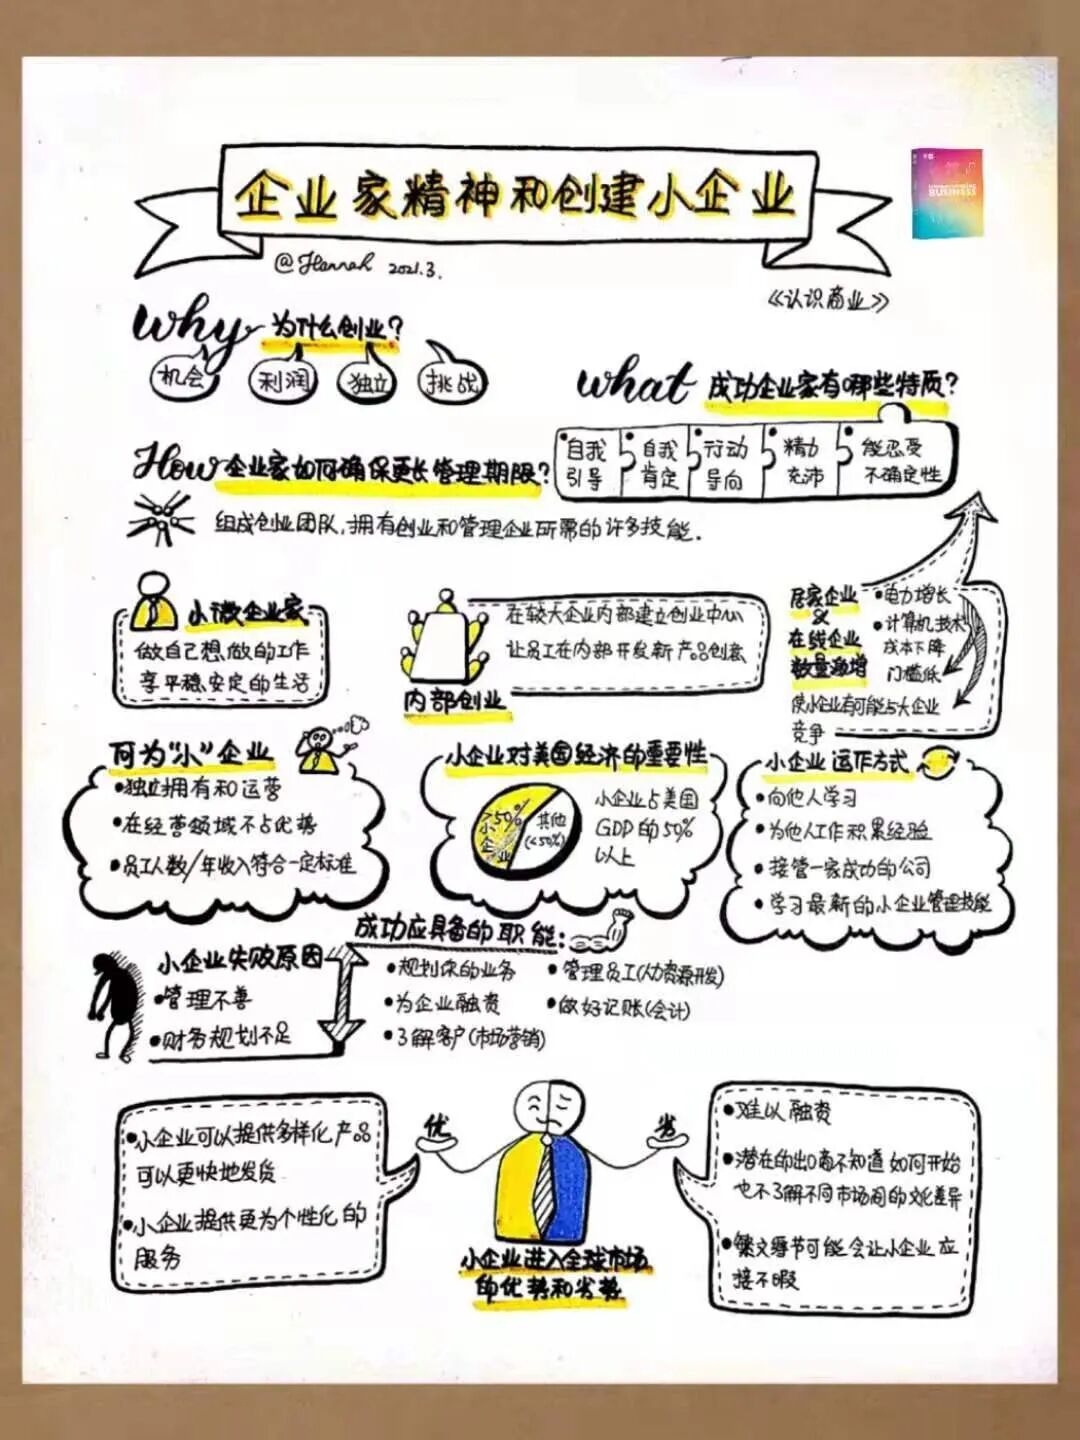 企业家精神和创建小企业
@Hannah 2021.3.
BUSINESS
《认识商业》
Why 为什么创业?
机会
利润
独立
挑战
What 成功企业家有哪些特质?
自我
引导
自我
肯定
行动
导向
精力
充沛
能忍受
不确定性
How 企业家如何确保更长管理期限?
组成创业团队,拥有创业和管理企业所需的许多技能.
小微企业家
做自己想做的工作
享平稳安定的生活
内部创业
在较大企业内部建立创业中心
让员工在内部开发新产品创意
居家企业
&
在线企业
数量激增
•电力增长
•计算机技术
成本下降
门槛低
使小企业有可能与大企业
竞争
何为“小”企业
•独立拥有和运营
•在经营领域不占优势
•员工人数/年收入符合一定标准
小企业对美国经济的重要性
>50%
小企业
其他
(<50%)
小企业占美国
GDP的50%
以上
小企业运作方式
•向他人学习
•为他人工作积累经验
•接管一家成功的公司
•学习最新的小企业管理技能
小企业失败原因
•管理不善
•财务规划不足
成功应具备的职能:
•规划你的业务
•为企业融资
•了解客户(市场营销)
•管理员工(人力资源开发)
•做好记账(会计)
优
•小企业可以提供多样化产品
可以更快地发货
•小企业提供更为个性化的
服务
劣
•难以融资
•潜在的出口商不知道如何开始
也不了解不同市场间的文化差异
•繁文缛节可能会让小企业应
接不暇
小企业进入全球市场
的优势和劣势